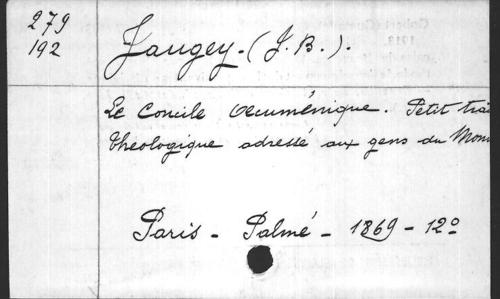 279
192
Jaugey. (J. B.).
Le Concile Œcuménique. Petit trai
théologique adressé aux gens du Mon
Paris - Palmé - 1869 - 12º